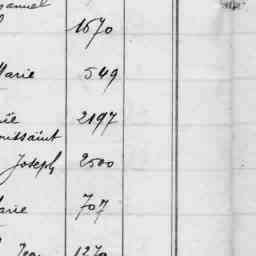 1670
Marie 549
2197
Toussaint
Joseph 2500
Marie 707
Jean 1270